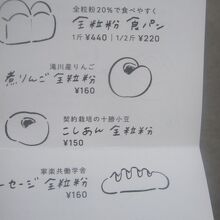 全粒粉20%で食べやすく
全粒粉 食パン
1斤 ¥440 | 1/2斤 ¥220
滝川産りんご
煮りんご 全粒粉
¥160
契約栽培の十勝小豆
こしあん 全粒粉
¥150
寧楽共働学舎
セージ 全粒粉
¥160